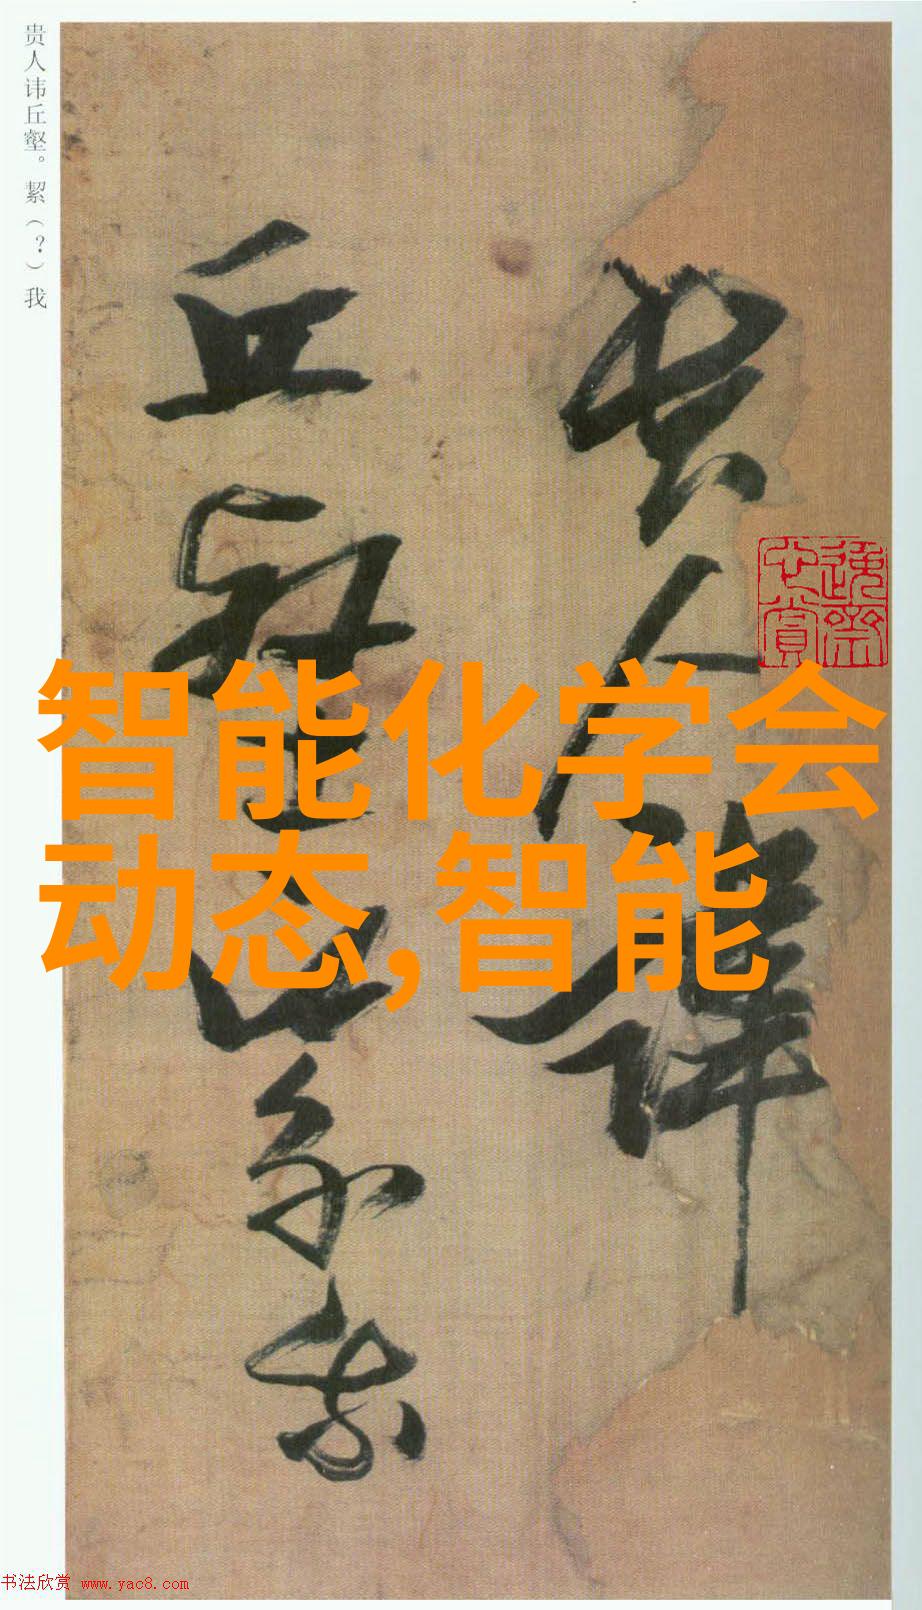 贵人讳丘壑。絜（？）我
貴人諱
丘壑絜我
智能化学会
动态,智能
书法欣赏 www.yac8.com